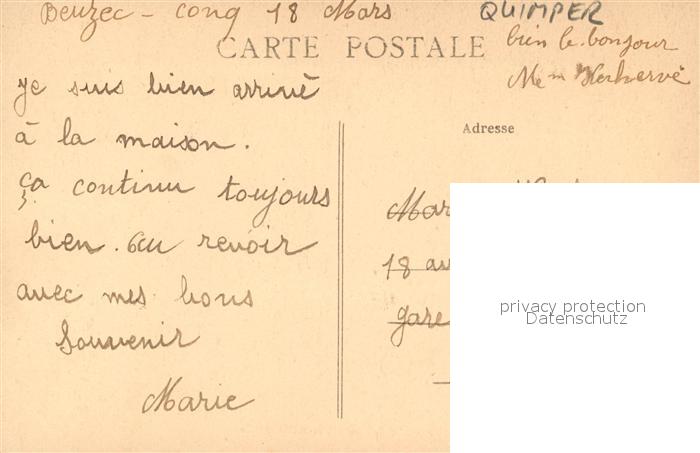 Beuzec - conq 18 Mars
QUIMPER
CARTE POSTALE
bien le bonjour
Mem
je suis bien arrivé
à la maison.
ça continu toujours
bien. au revoir
avec mes bons
souvenir
Marie
Adresse
18 av
gare
privacy protection
Datenschutz